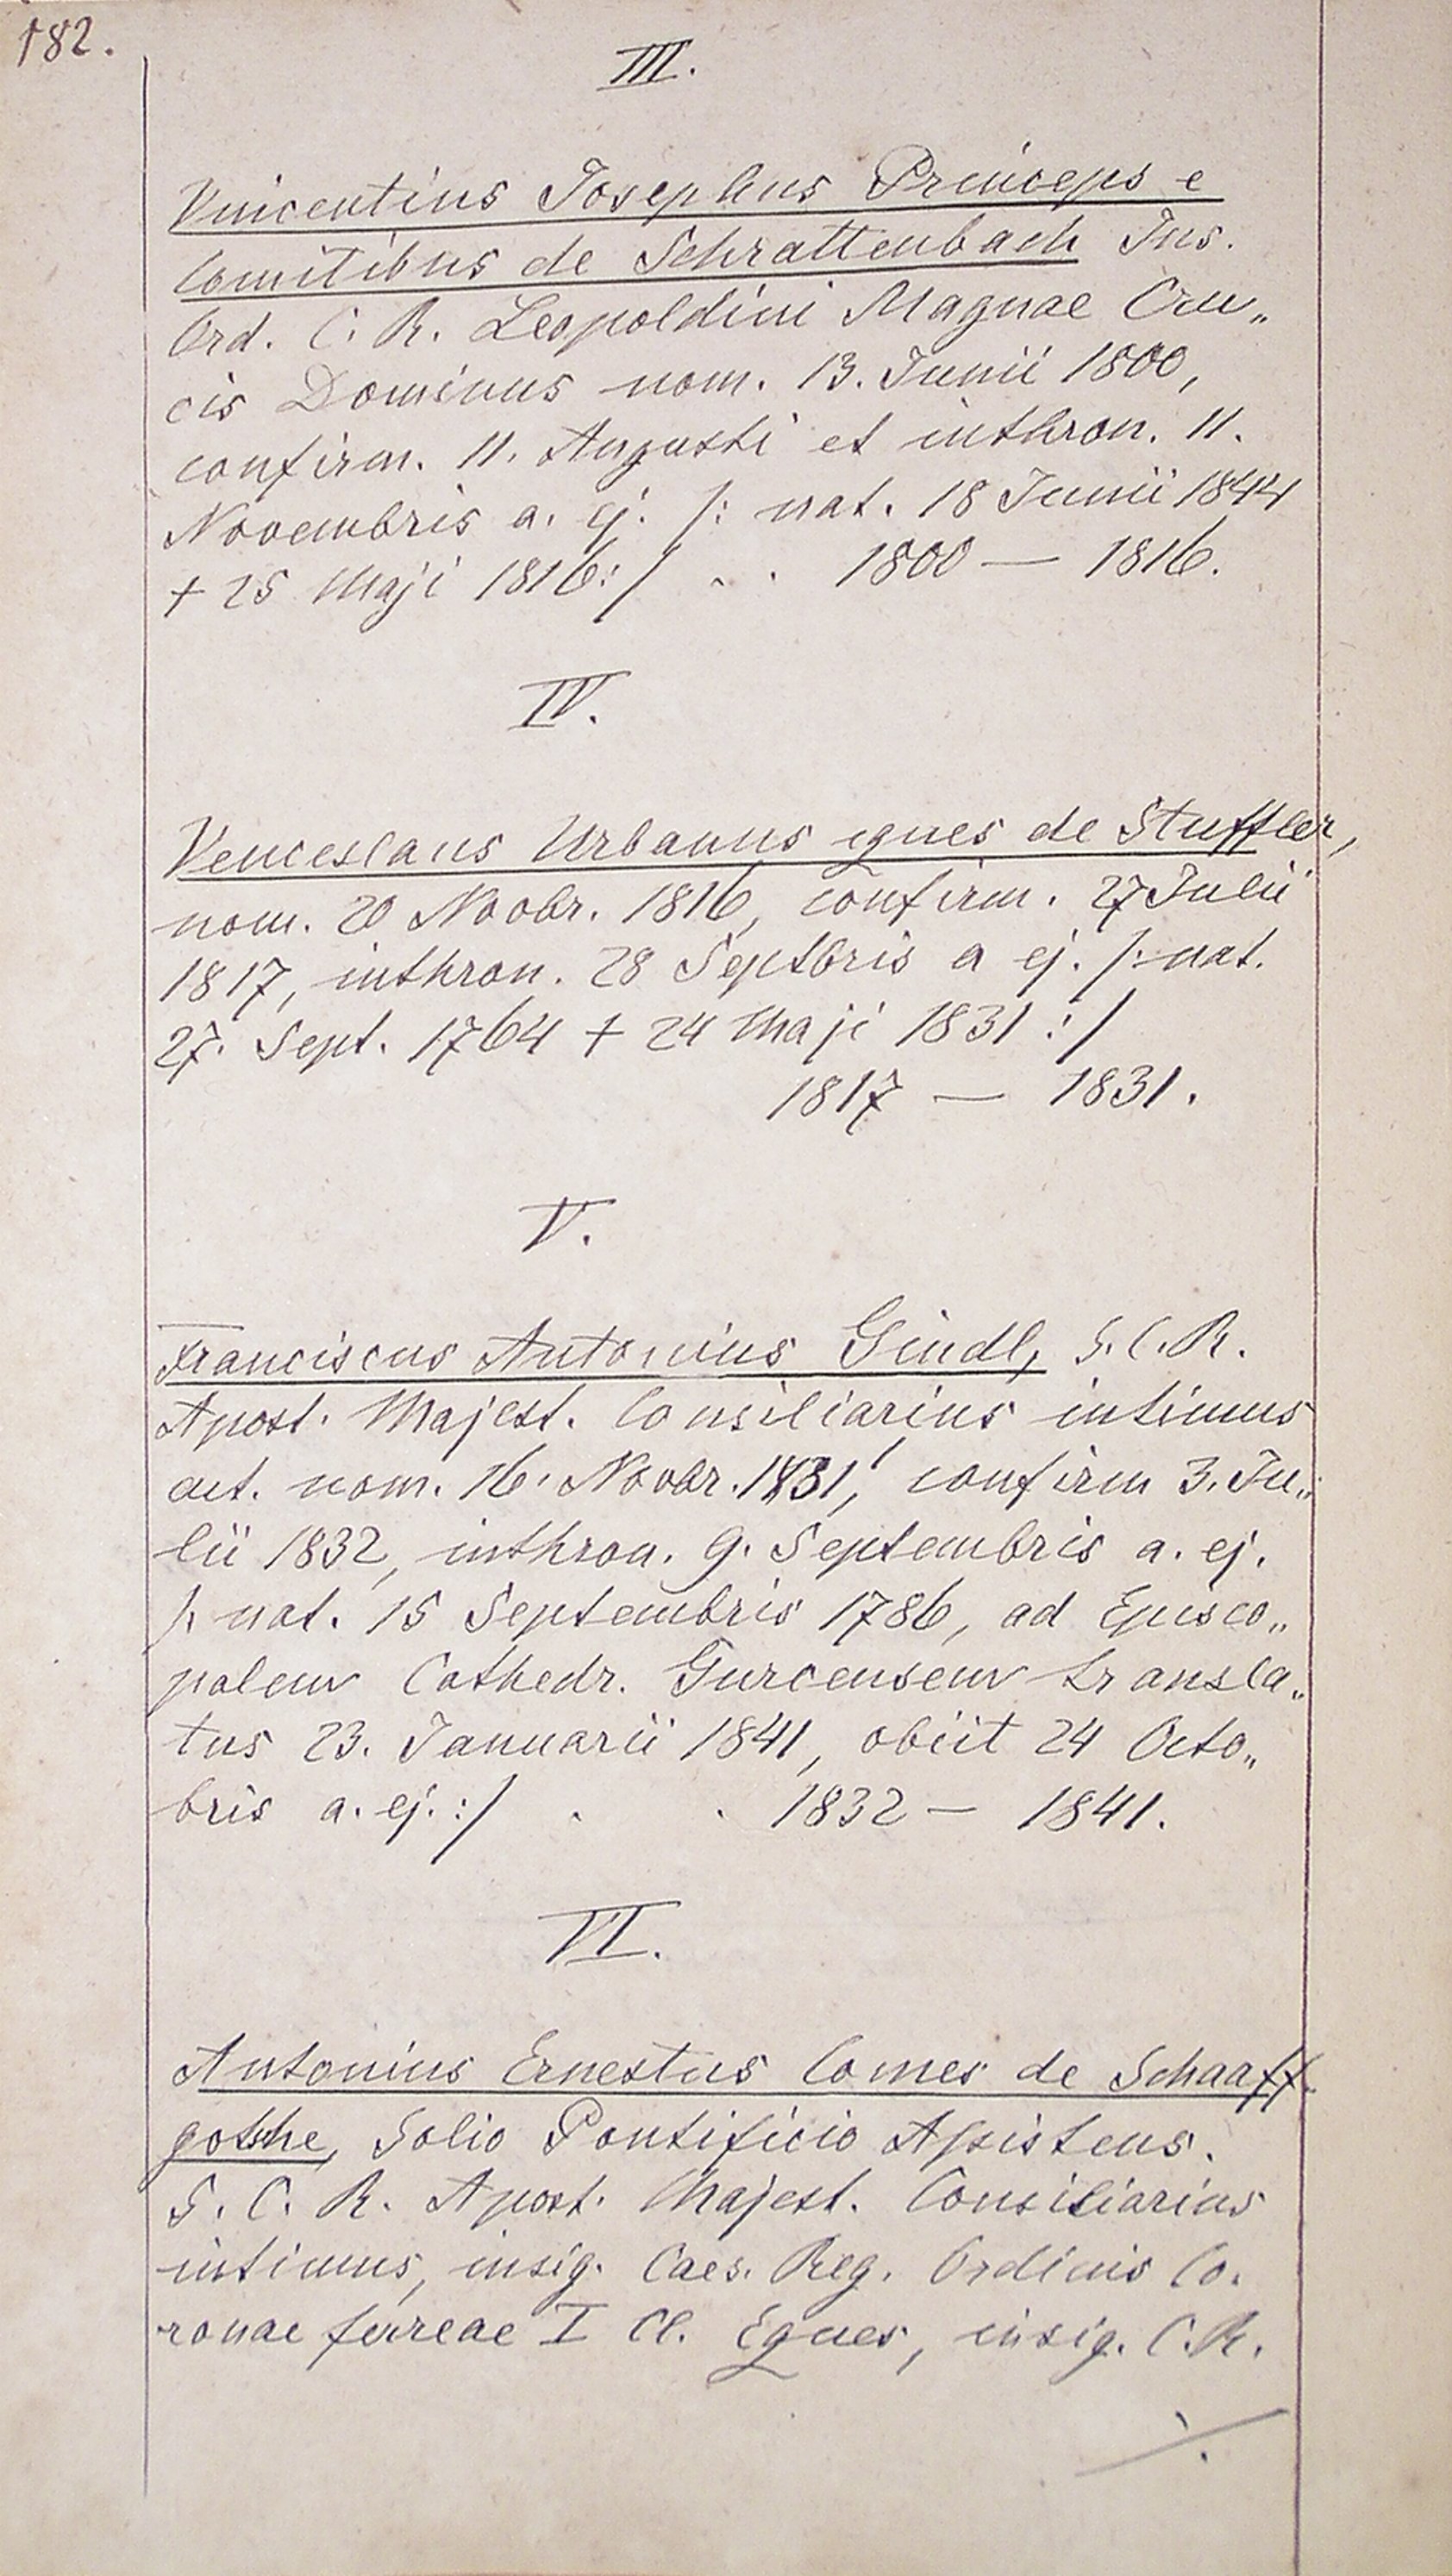 182.
III.
Vincentius Josephus Princeps e
Comitibus de Schrattenbach Ins.
Ord. C. R. Leopoldini Magnae Cru„
cis Dominus nom. 13. Junii 1800,
confirm. 11. Augusti et inthron. 11.
Novembris a. ej. /: nat. 18 Junii 1844
+ 25 Maji 1816:/ . . 1800 — 1816.
IV.
Venceslaus Urbanus eques de Stuffler,
nom. 20 Novbr. 1816, confirm. 27 Julii
1817, inthron. 28 Septbris a ej. /: nat.
27. Sept. 1764 + 24 Maji 1831 :/
1817 — 1831.
V.
Franciscus Antonius Gindl, S. C. R.
Apost. Majest. Consiliarius intimus
act. nom. 16. Novbr. 1831, confirm 3. Ju„
lii 1832, inthron. 9. Septembris a. ej.
/: nat. 15 Septembris 1786, ad Episco„
palem Cathedr. Gurcensem transla„
tus 23. Januarii 1841, obiit 24 Octo„
bris a. ej. :/ . . 1832 — 1841.
VI.
Antonius Ernestus Comes de Schaaff„
gotshe, Solio Pontificio Assistens.
S. C. R. Apost. Majest. Consiliarius
intimus, insig. Caes. Reg. Ordinis Co„
ronae ferreae I Cl. Eques, insig. C. R.
./.